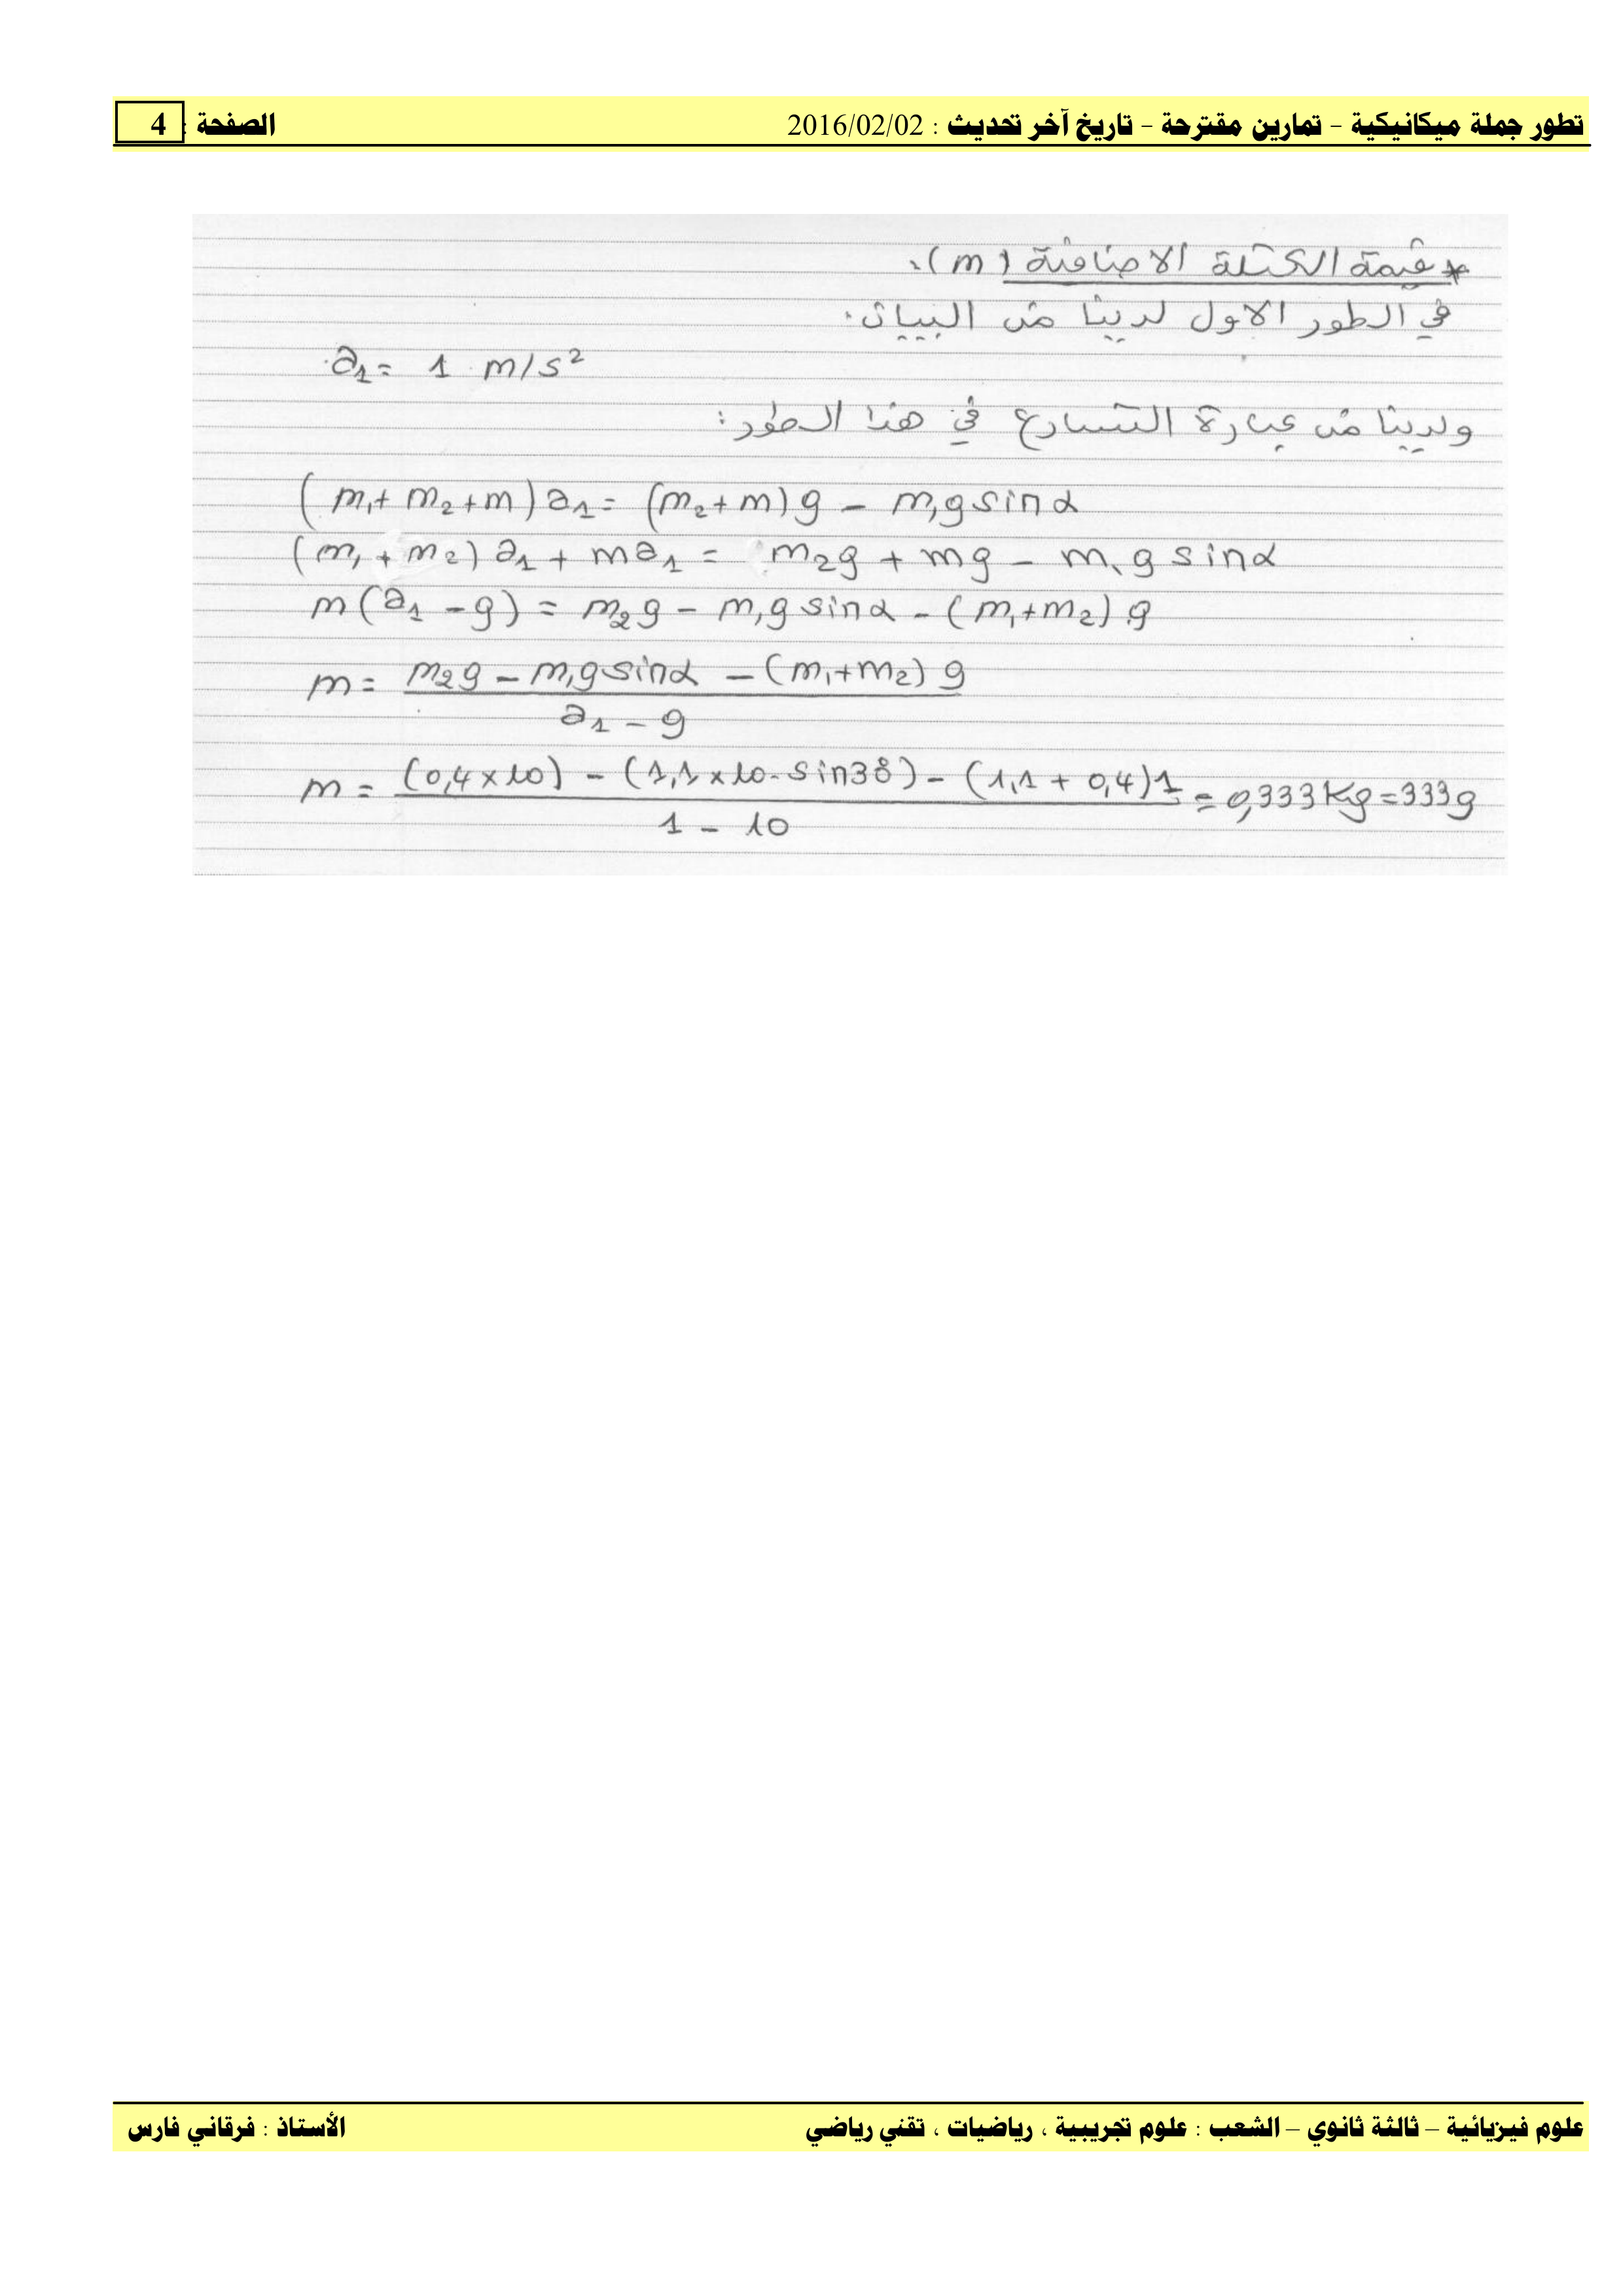 تطور جملة ميكانيكية - تمارين مقترحة - تاريخ آخر تحديث : 2016/02/02 الصفحة : 4
* قيمة الكتلة الاضافية (m).
في الطور الاول لدينا من البيان.
a₁ = 1 m/s²
ولدينا من عبارة التسارع في هذا الطور:
(m₁ + m₂ + m) a₁ = (m₂ + m) g - m₁g sin α
(m₁ + m₂) a₁ + m a₁ = m₂g + mg - m₁g sin α
m (a₁ - g) = m₂g - m₁g sin α - (m₁ + m₂) g
m = m₂g - m₁g sin α - (m₁ + m₂) g
a₁ - g
m = (0,4 × 10) - (1,1 × 10 . sin 30) - (1,1 + 0,4) 1 = 0,333 Kg = 333 g
1 - 10
علوم فيزيائية – ثالثة ثانوي – الشعب : علوم تجريبية ، رياضيات ، تقني رياضي الأستاذ : فرقاني فارس